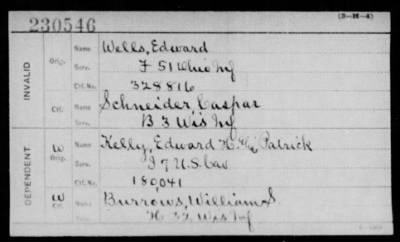 230546
(3-H-4)
INVALID
Orig.
Name Wells, Edward
Serv. F 51 Ohio Inf
Ctf. No. 328816
Ctf.
Name Schneider, Caspar
Serv. B 3 Wis Inf
DEPENDENT
W
Orig.
Name Kelly, Edward K. Patrick
Serv. I 7 U.S. Cav
Ctf. No. 180,041
W
Ctf.
Name Burrows, William S.
Serv. Wis Inf